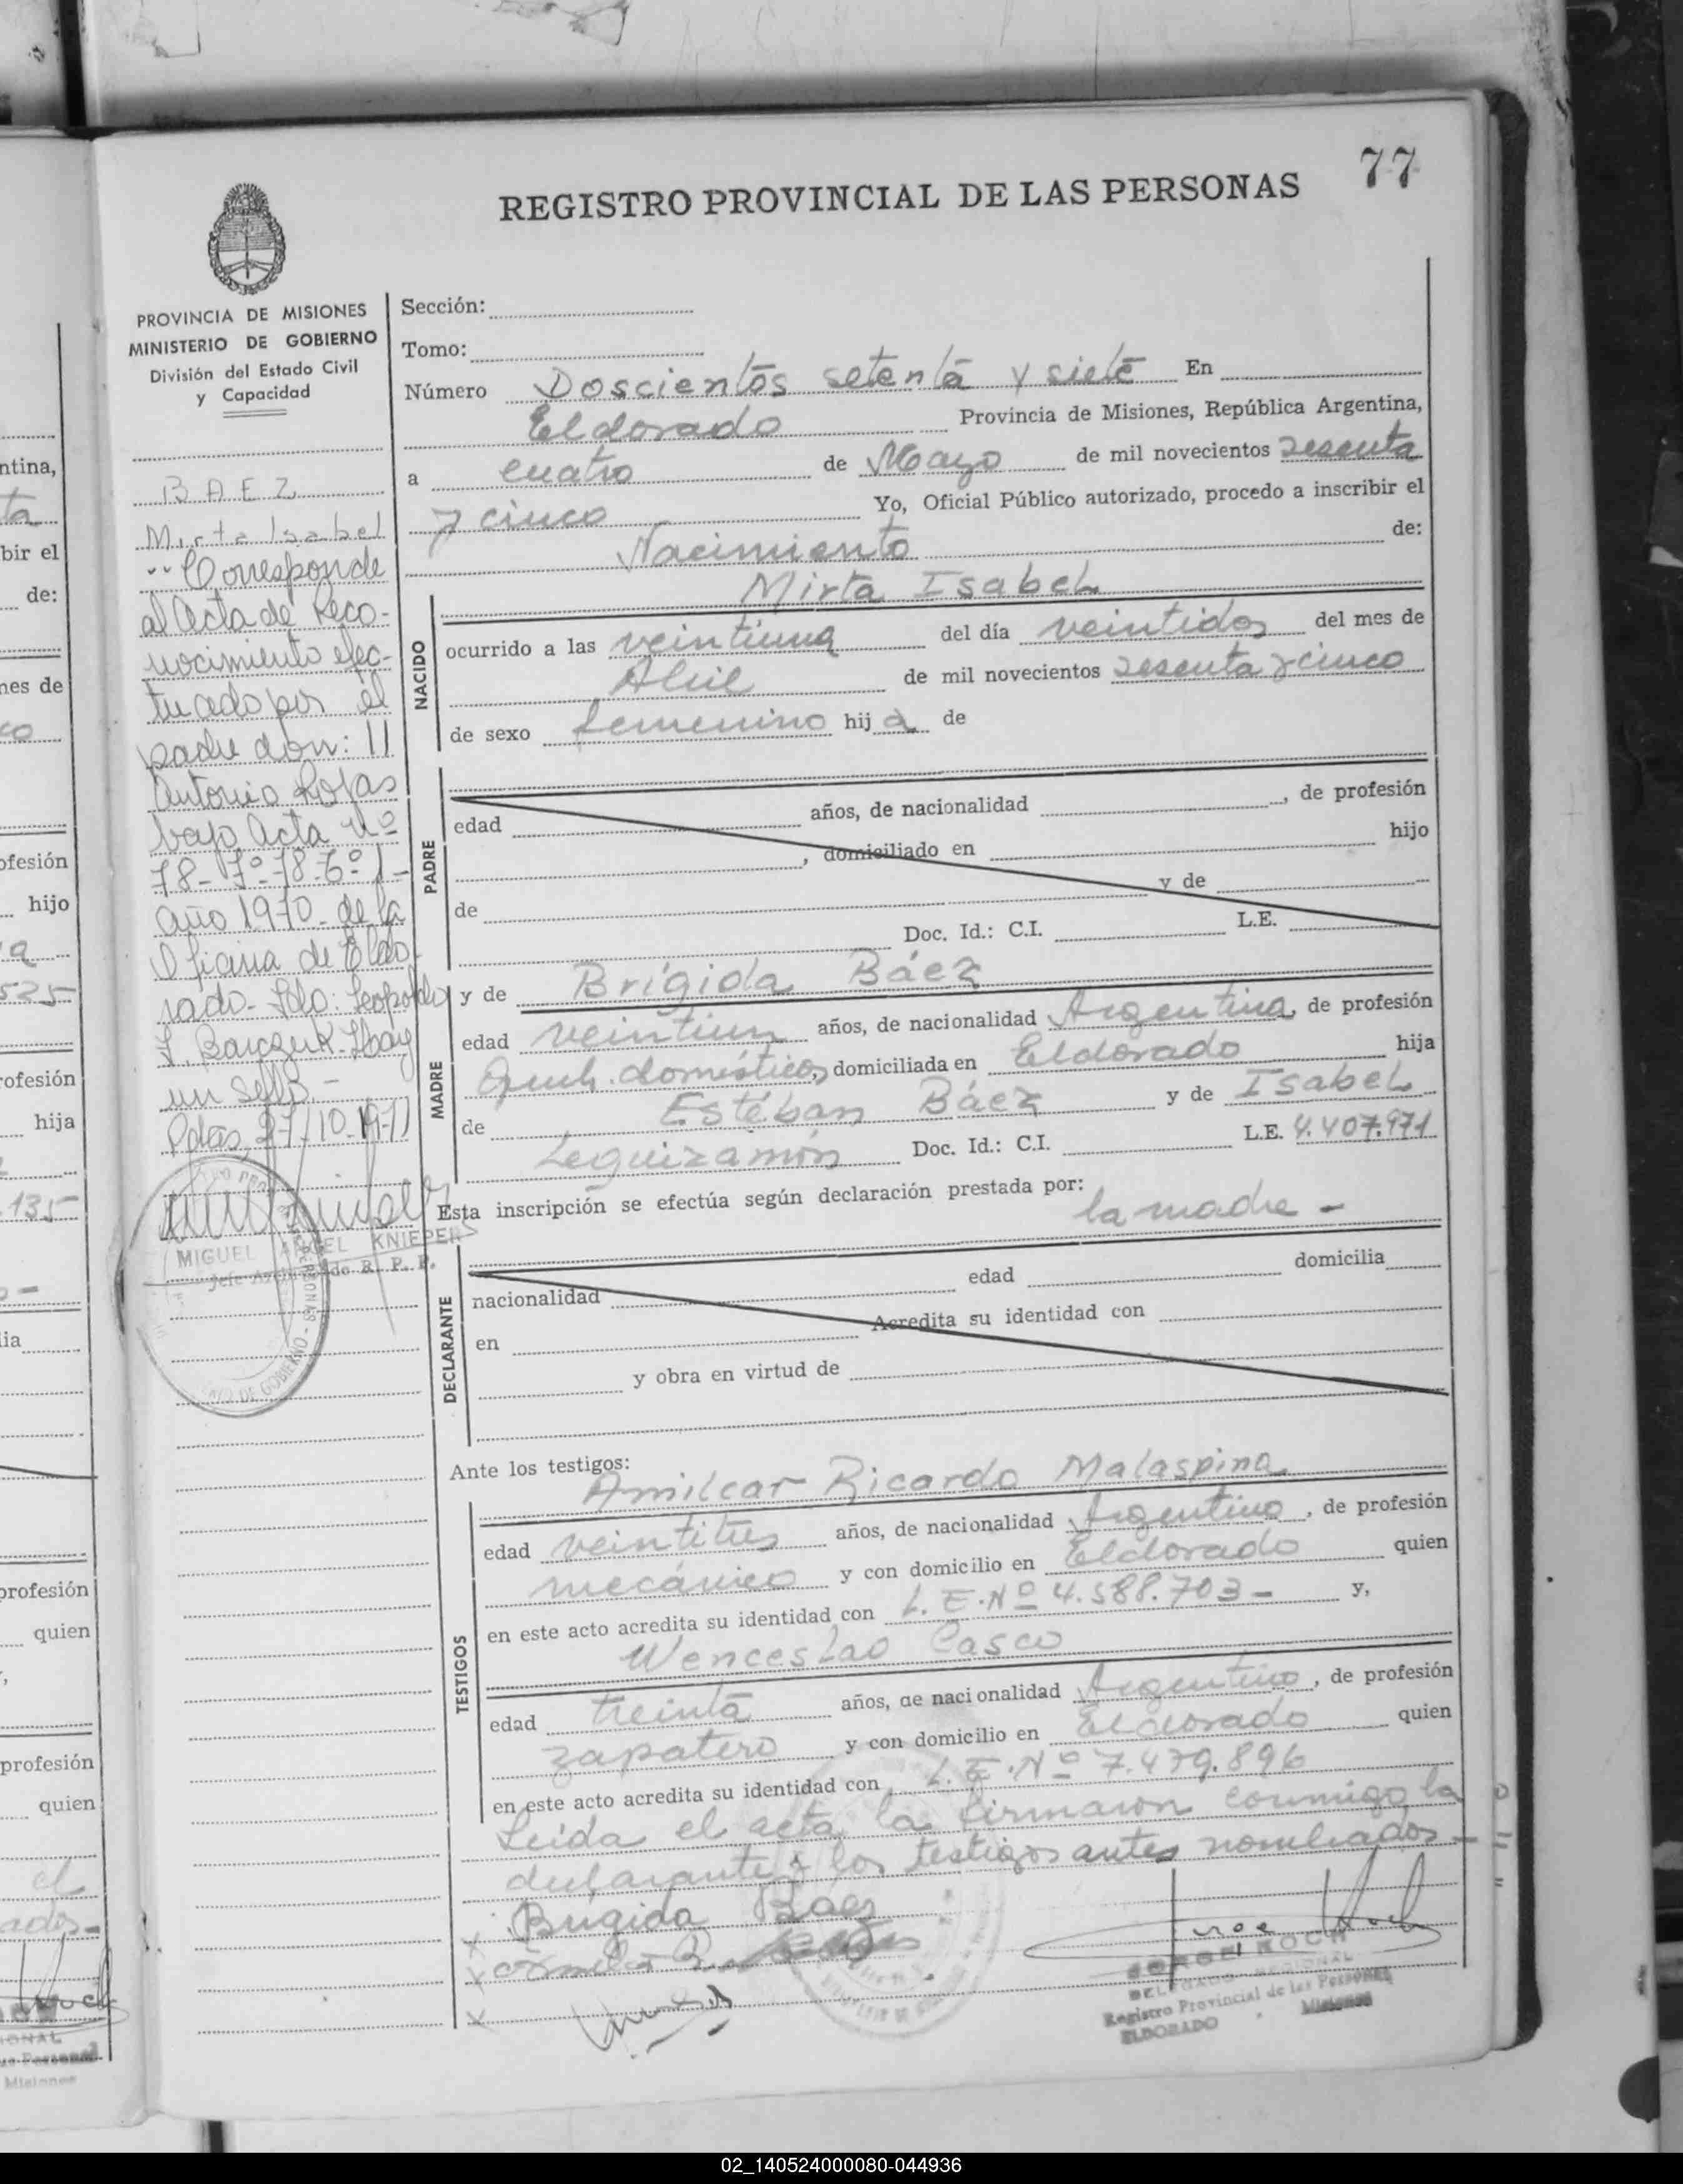 77
REGISTRO PROVINCIAL DE LAS PERSONAS
PROVINCIA DE MISIONES
MINISTERIO DE GOBIERNO
División del Estado Civil
y Capacidad
BAEZ
Mirta Isabel
Corresponde
al Acta de Reco-
nocimiento efec-
tuado por el
padre don:
Antonio Rojas
bajo Acta nº
78-
año 1970- de la
Oficina de Eldo
rado- Fdo: Leopoldo
un sello.-
Pdas, 27/10-1971
MIGUEL ANGEL KNIEPERS
R. P. P.
Sección:
Tomo:
Número Doscientos setenta y siete En
Eldorado Provincia de Misiones, República Argentina,
a cuatro de Mayo de mil novecientos sesenta
y cinco Yo, Oficial Público autorizado, procedo a inscribir el
Nacimiento de:
NACIDO
Mirta Isabel
ocurrido a las veintiuna del día veintidos del mes de
Abril de mil novecientos sesenta y cinco
de sexo femenino hij a de
PADRE
edad años, de nacionalidad , de profesión
, domiciliado en hijo
de y de
Doc. Id.: C.I. L.E.
MADRE
y de Brígida Báez
edad veintiun años, de nacionalidad Argentina, de profesión
Queh. domésticos, domiciliada en Eldorado hija
de Estéban Báez y de Isabel
Leguizamón Doc. Id.: C.I. L.E. 4.407.971
Esta inscripción se efectúa según declaración prestada por:
la madre -
DECLARANTE
edad domicilia
nacionalidad
en Acredita su identidad con
y obra en virtud de
Ante los testigos:
TESTIGOS
Amilcar Ricardo Malaspina
edad veintitres años, de nacionalidad Argentino, de profesión
mecánico y con domicilio en Eldorado quien
en este acto acredita su identidad con L.E.Nº 4.588.703- y,
Wenceslao Casco
edad treinta años, de nacionalidad Argentino, de profesión
zapatero y con domicilio en Eldorado quien
en este acto acredita su identidad con L.E.Nº 7.479.896
Leida el acta, la firmaron conmigo, la
declarante y los testigos antes nombrados-
Brigida Baez
JORGE KOCH
DELEGADO REGIONAL
Registro Provincial de las Personas
ELDORADO Misiones
ntina,
ta
bir el
de:
nes de
co
ofesión
hijo
a
525
rofesión
hija
135
lia
profesión
quien
profesión
quien
el
ados-
IONAL
Misiones
02_140524000080-044936